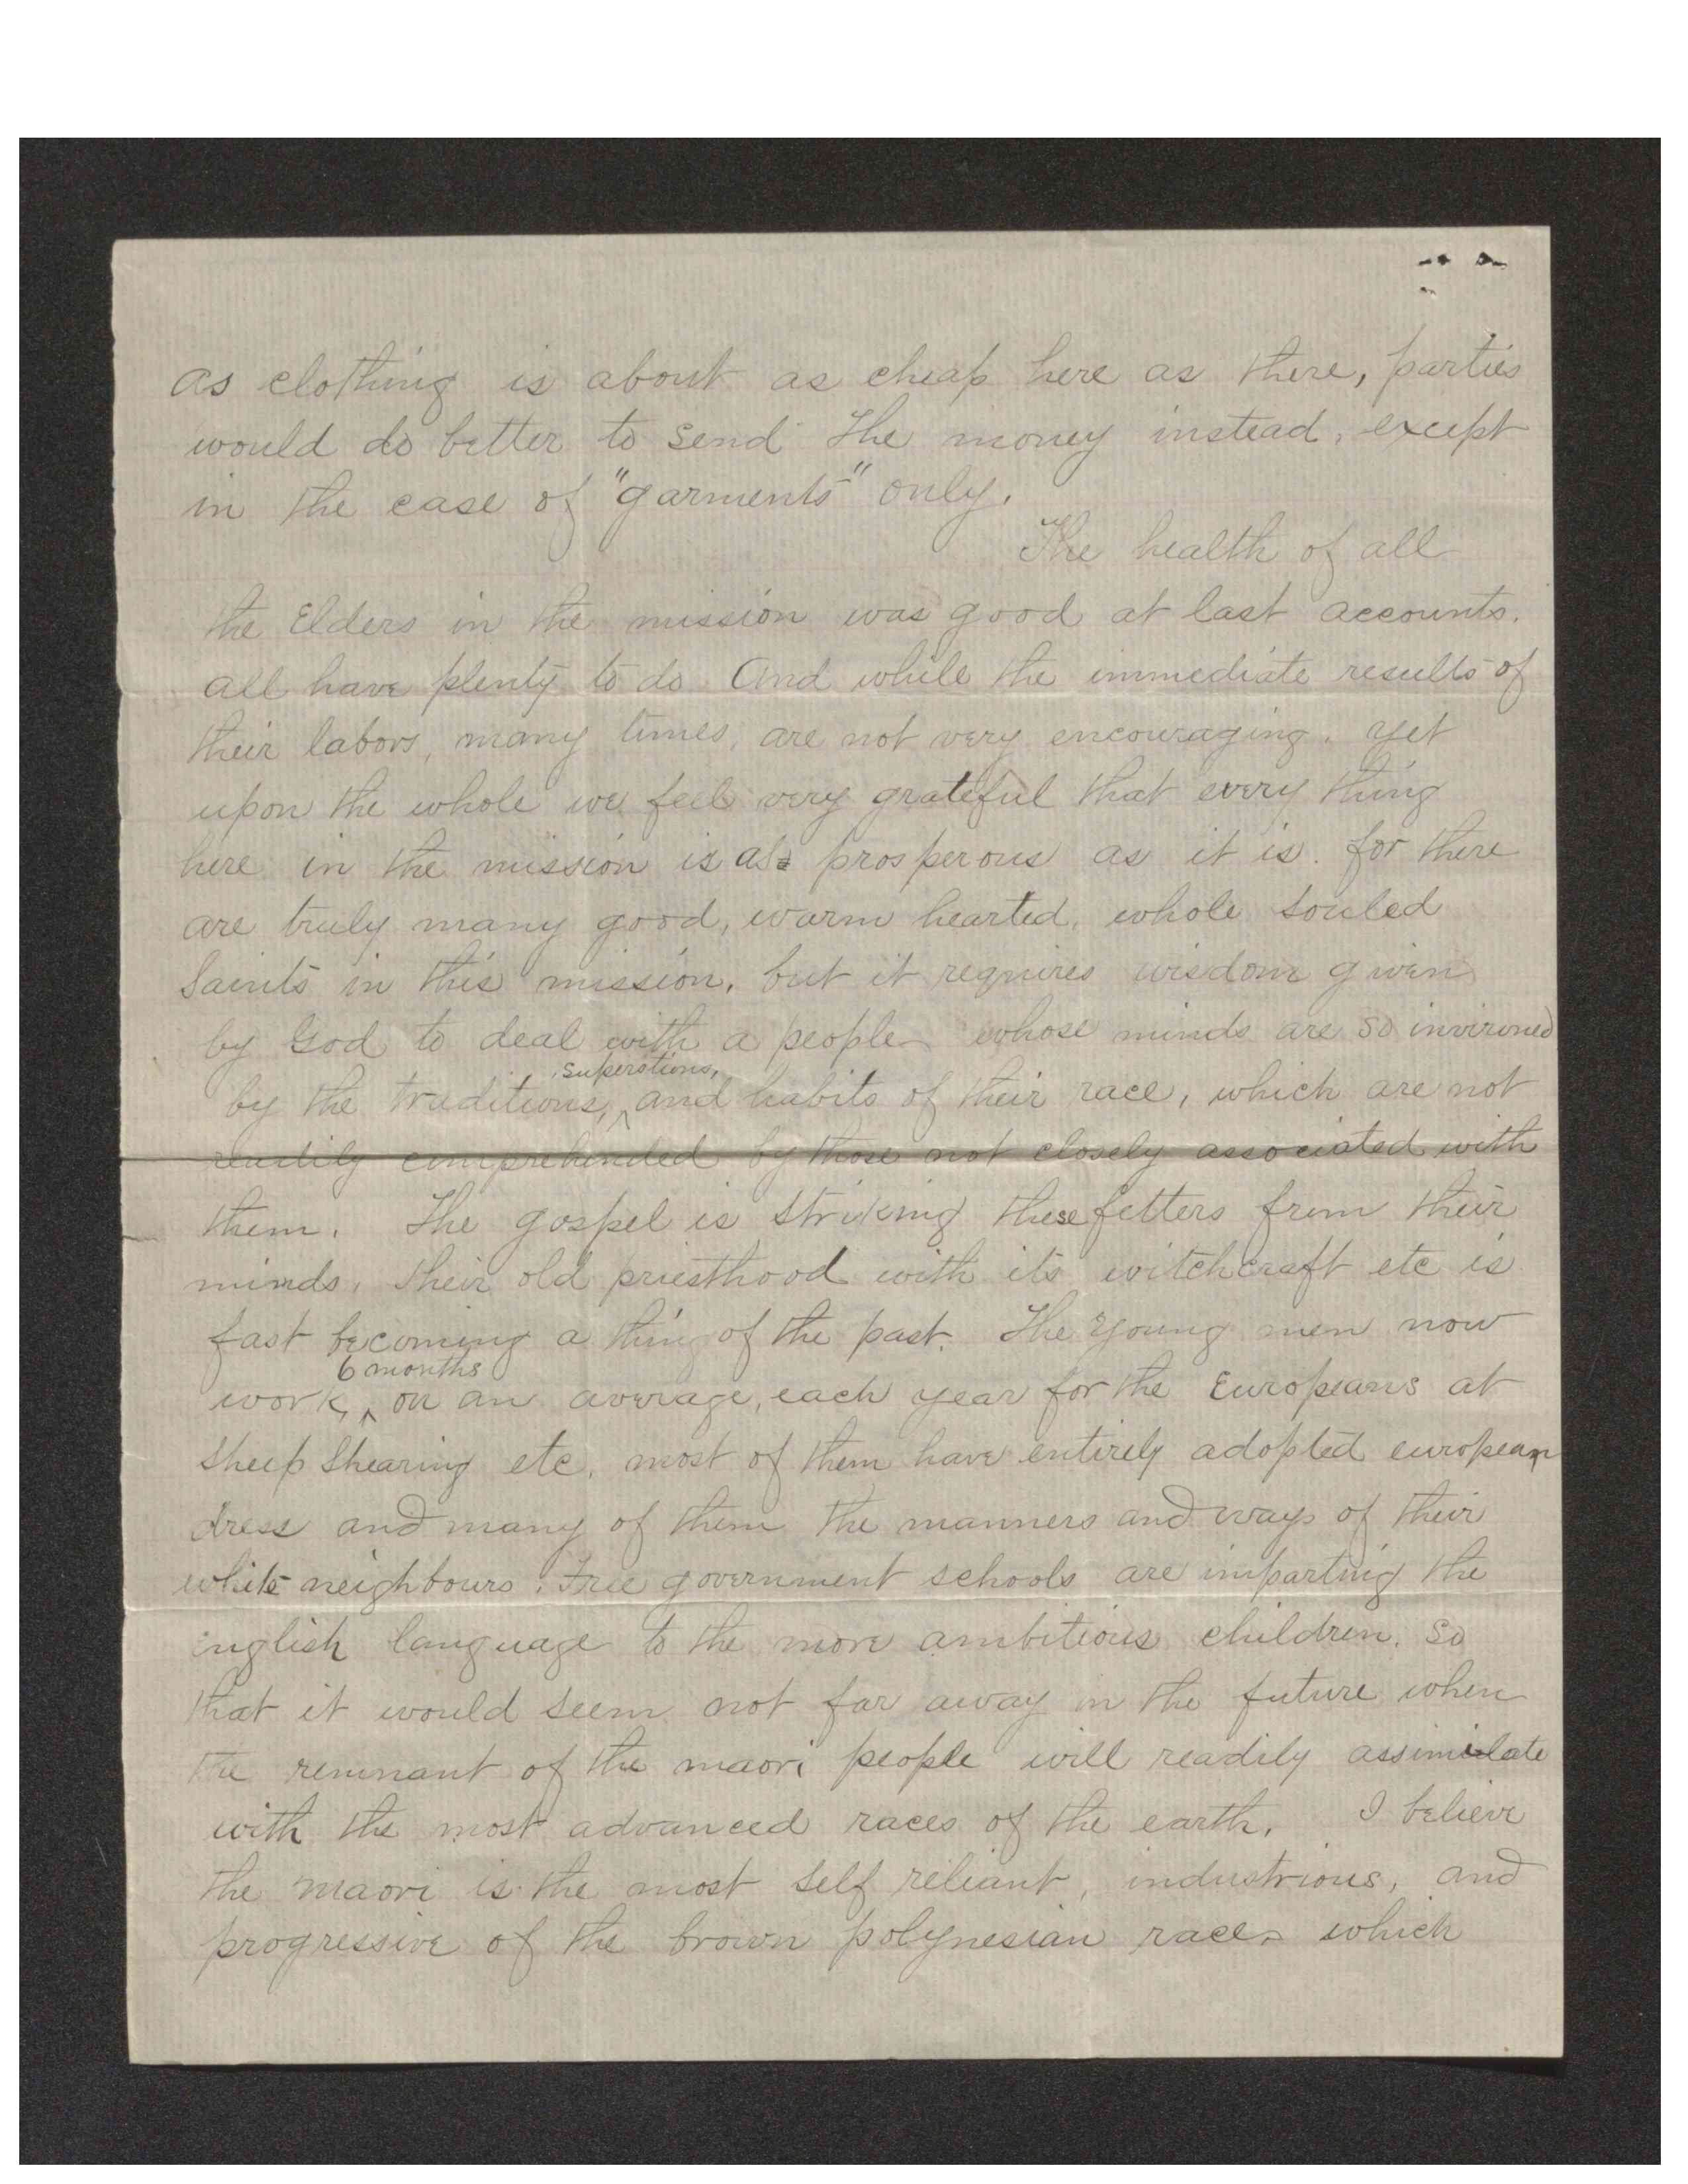 as clothing is about as cheap here as there, parties
would do better to send the money instead, except
in the case of "garments" only.
The health of all
the Elders in the mission was good at last accounts.
all have plenty to do And while the immediate results of
their labors, many times, are not very encouraging. yet
upon the whole we feel very grateful that every thing
here in the mission is as prosperous as it is. for there
are truly many good, warm hearted, whole souled
Saints in this mission, but it requires wisdom given
by God to deal with a people whose minds are so invironed
superstions,
by the traditions, ^ and habits of their race, which are not
readily comprehended by those not closely associated with
them. The gospel is striking these fetters from their
minds, their old priesthood with its witchcraft etc is
fast becoming a thing of the past. The young men now
6 months
work, ^ on an average, each year for the Europeans at
sheep shearing etc. most of them have entirely adopted european
dress and many of them the manners and ways of their
white neighbours. Free government schools are imparting the
english language to the more ambitious children. so
that it would seem not far away in the future when
the remnant of the maori people will readily assimilate
with the most advanced races of the earth. I believe
the maori is the most self reliant, industrious, and
progressive of the brown polynesian race which